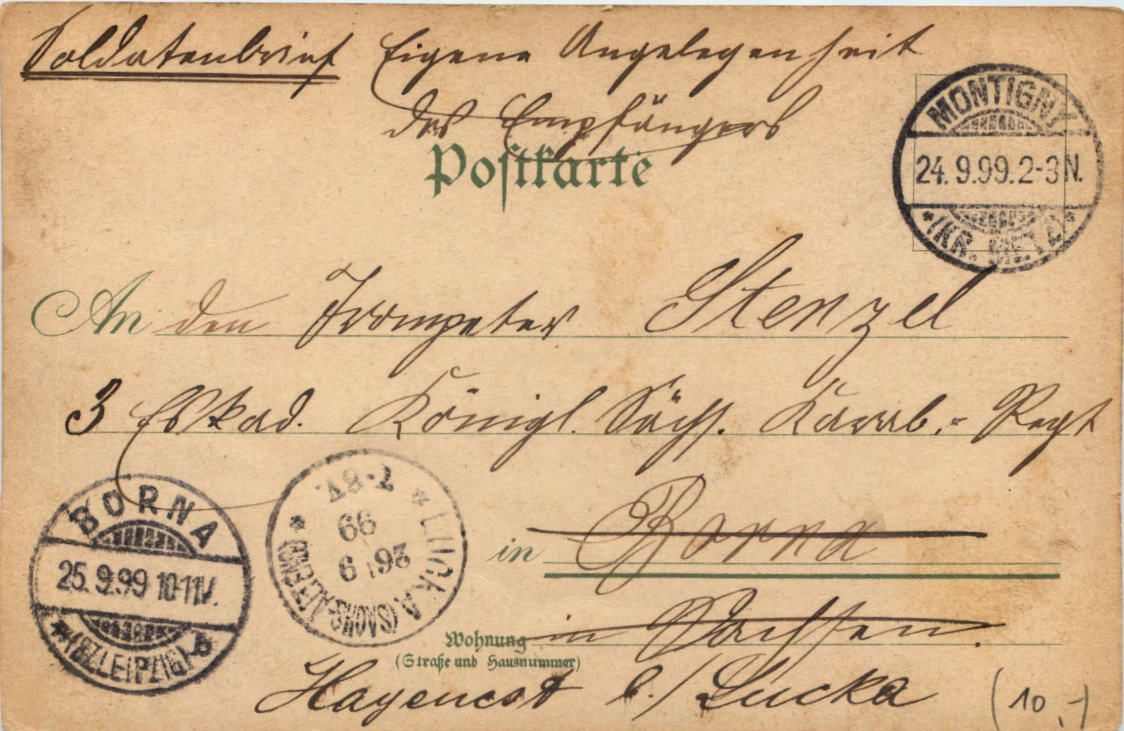 Soldatenbrief Eigene Angelegenheit
des Empfängers
Postkarte
MONTIGNY
24. 9. 99. 2-3 N.
*(KR. METZ)*
An den Trompeter Stenzel
3 Eskad. Königl. Sächs. Karab.-Regt
BORNA
25. 9. 99 10-11 V.
*(BZ LEIPZIG) b
* LUCKA (SACHS-ALTENBURG) *
26 9
99
7-8V.
in Borna
in Sachsen.
Wohnung
(Straße und Hausnummer)
b./Lucka
(10,-)